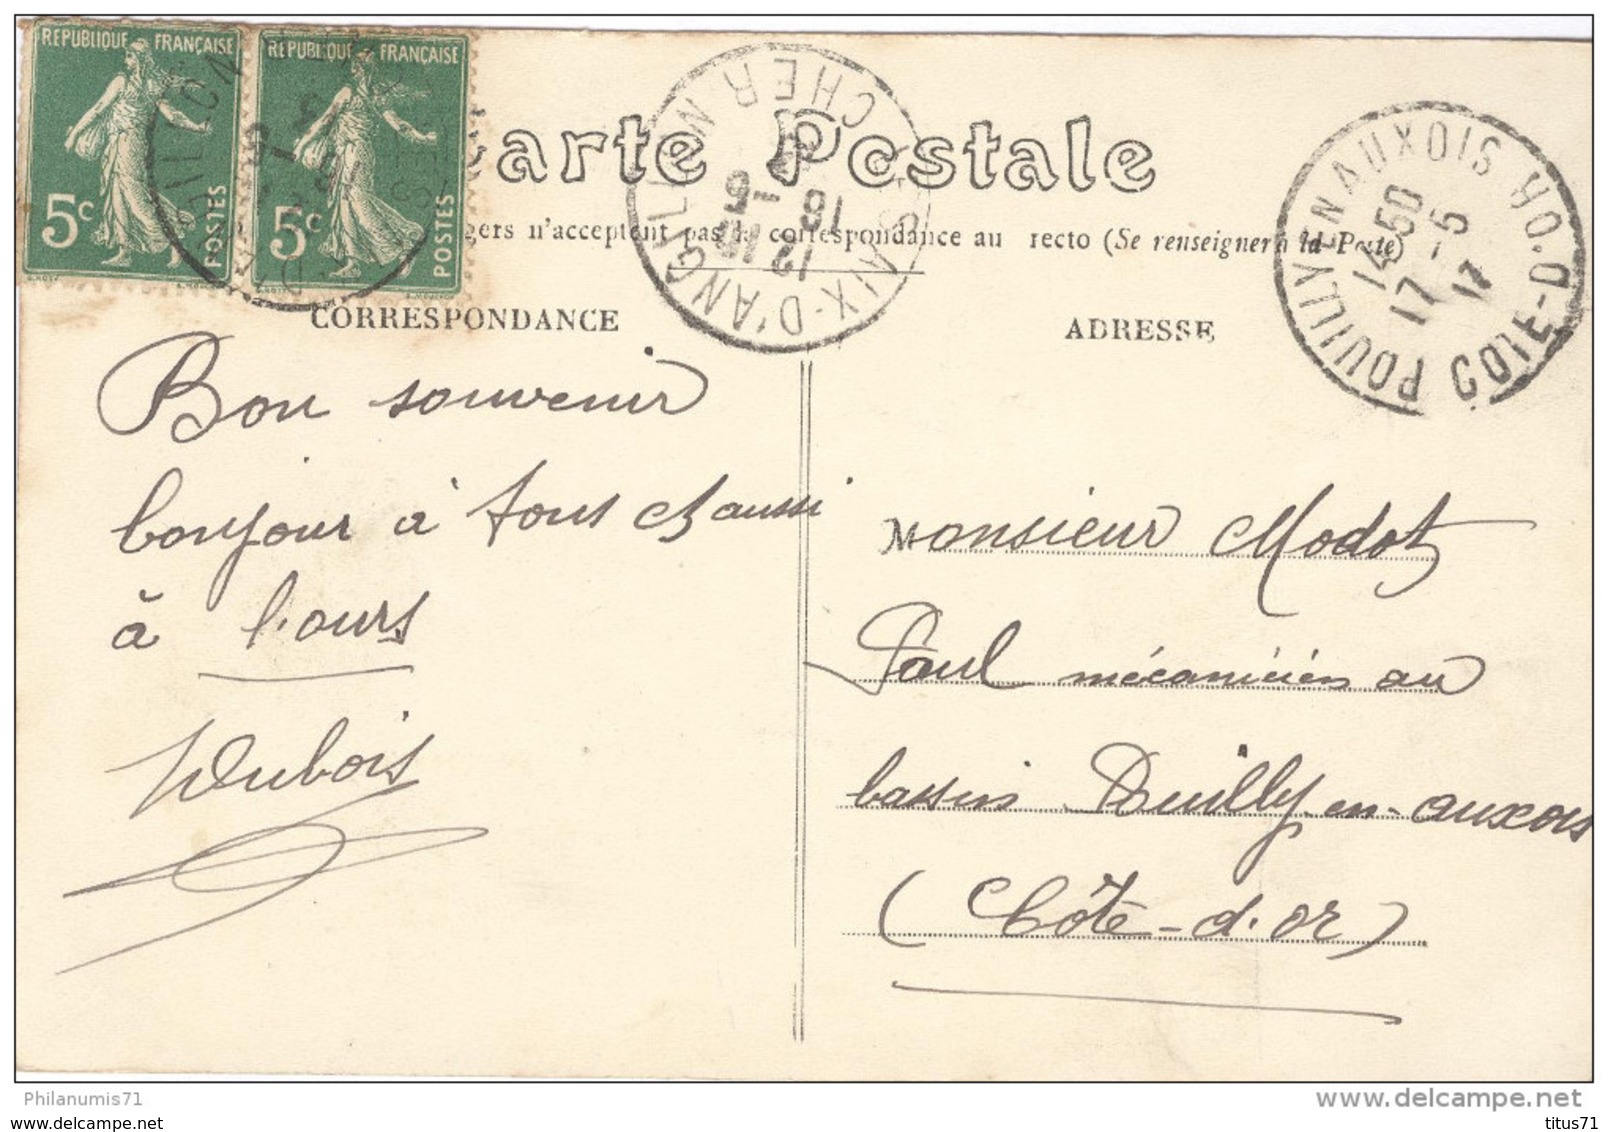 REPUBLIQUE FRANÇAISE
5c
POSTES
REPUBLIQUE FRANÇAISE
5c
POSTES
Carte Postale
gers n'acceptent pas la correspondance au recto (Se renseigner à la Poste)
CORRESPONDANCE
ADRESSE
D'ANGILLON
CHER
12
16 -5
POUILLY EN AUXOIS
COTE-D'OR
14 50
17 -5
17
Bon souvenir
bonjour à tous et aussi
à l'ours
Dubois
Monsieur Modot
Paul mécanicien au
bassin Pouilly-en-auxois
(Côte-d'or)
Philanumis71
www.delcampe.net
titus71